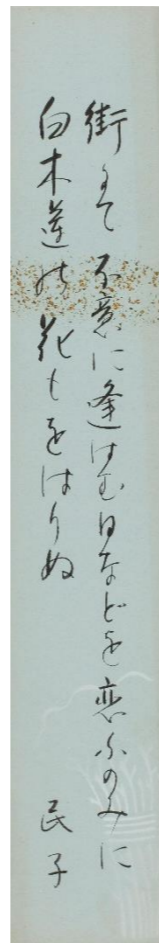 街にて不意に逢はむ日などを恋ふのみに
白木蓮の花もをはりぬ
民子